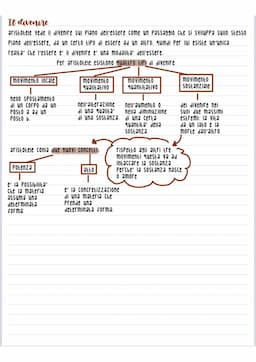 Il divenire
Aristotele vede il divenire sul piano dell'essere come un passaggio che si sviluppa sullo stesso
piano dell'essere, da un certo tipo di essere ad un altro, quindi per lui esiste un'unica
realtà che l'essere e il divenire è una modalità dell'essere.
Per Aristotele esistono quattro tipi di divenire
movimento locale
movimento qualitativo
movimento quantitativo
movimento sostanziale
nello spostamento
di un corpo da un
posto a ad un
posto b
nell'alterazione
di una qualità
di una
sostanza
nell'aumento o
nella diminuzione
di una certa
quantità della
sostanza
del divenire nei
suoi due massimi
estremi: la vita
da un lato e la
morte dall'altro
Aristotele conia due nuovi concetti
potenza
atto
È la possibilità
che la materia
assuma una
determinata
forma
È la concretizzazione
di una materia che
prende una
determinata forma
Rispetto agli altri tre
movimenti questa va ad
intaccare la sostanza
perché la sostanza nasce
o muore